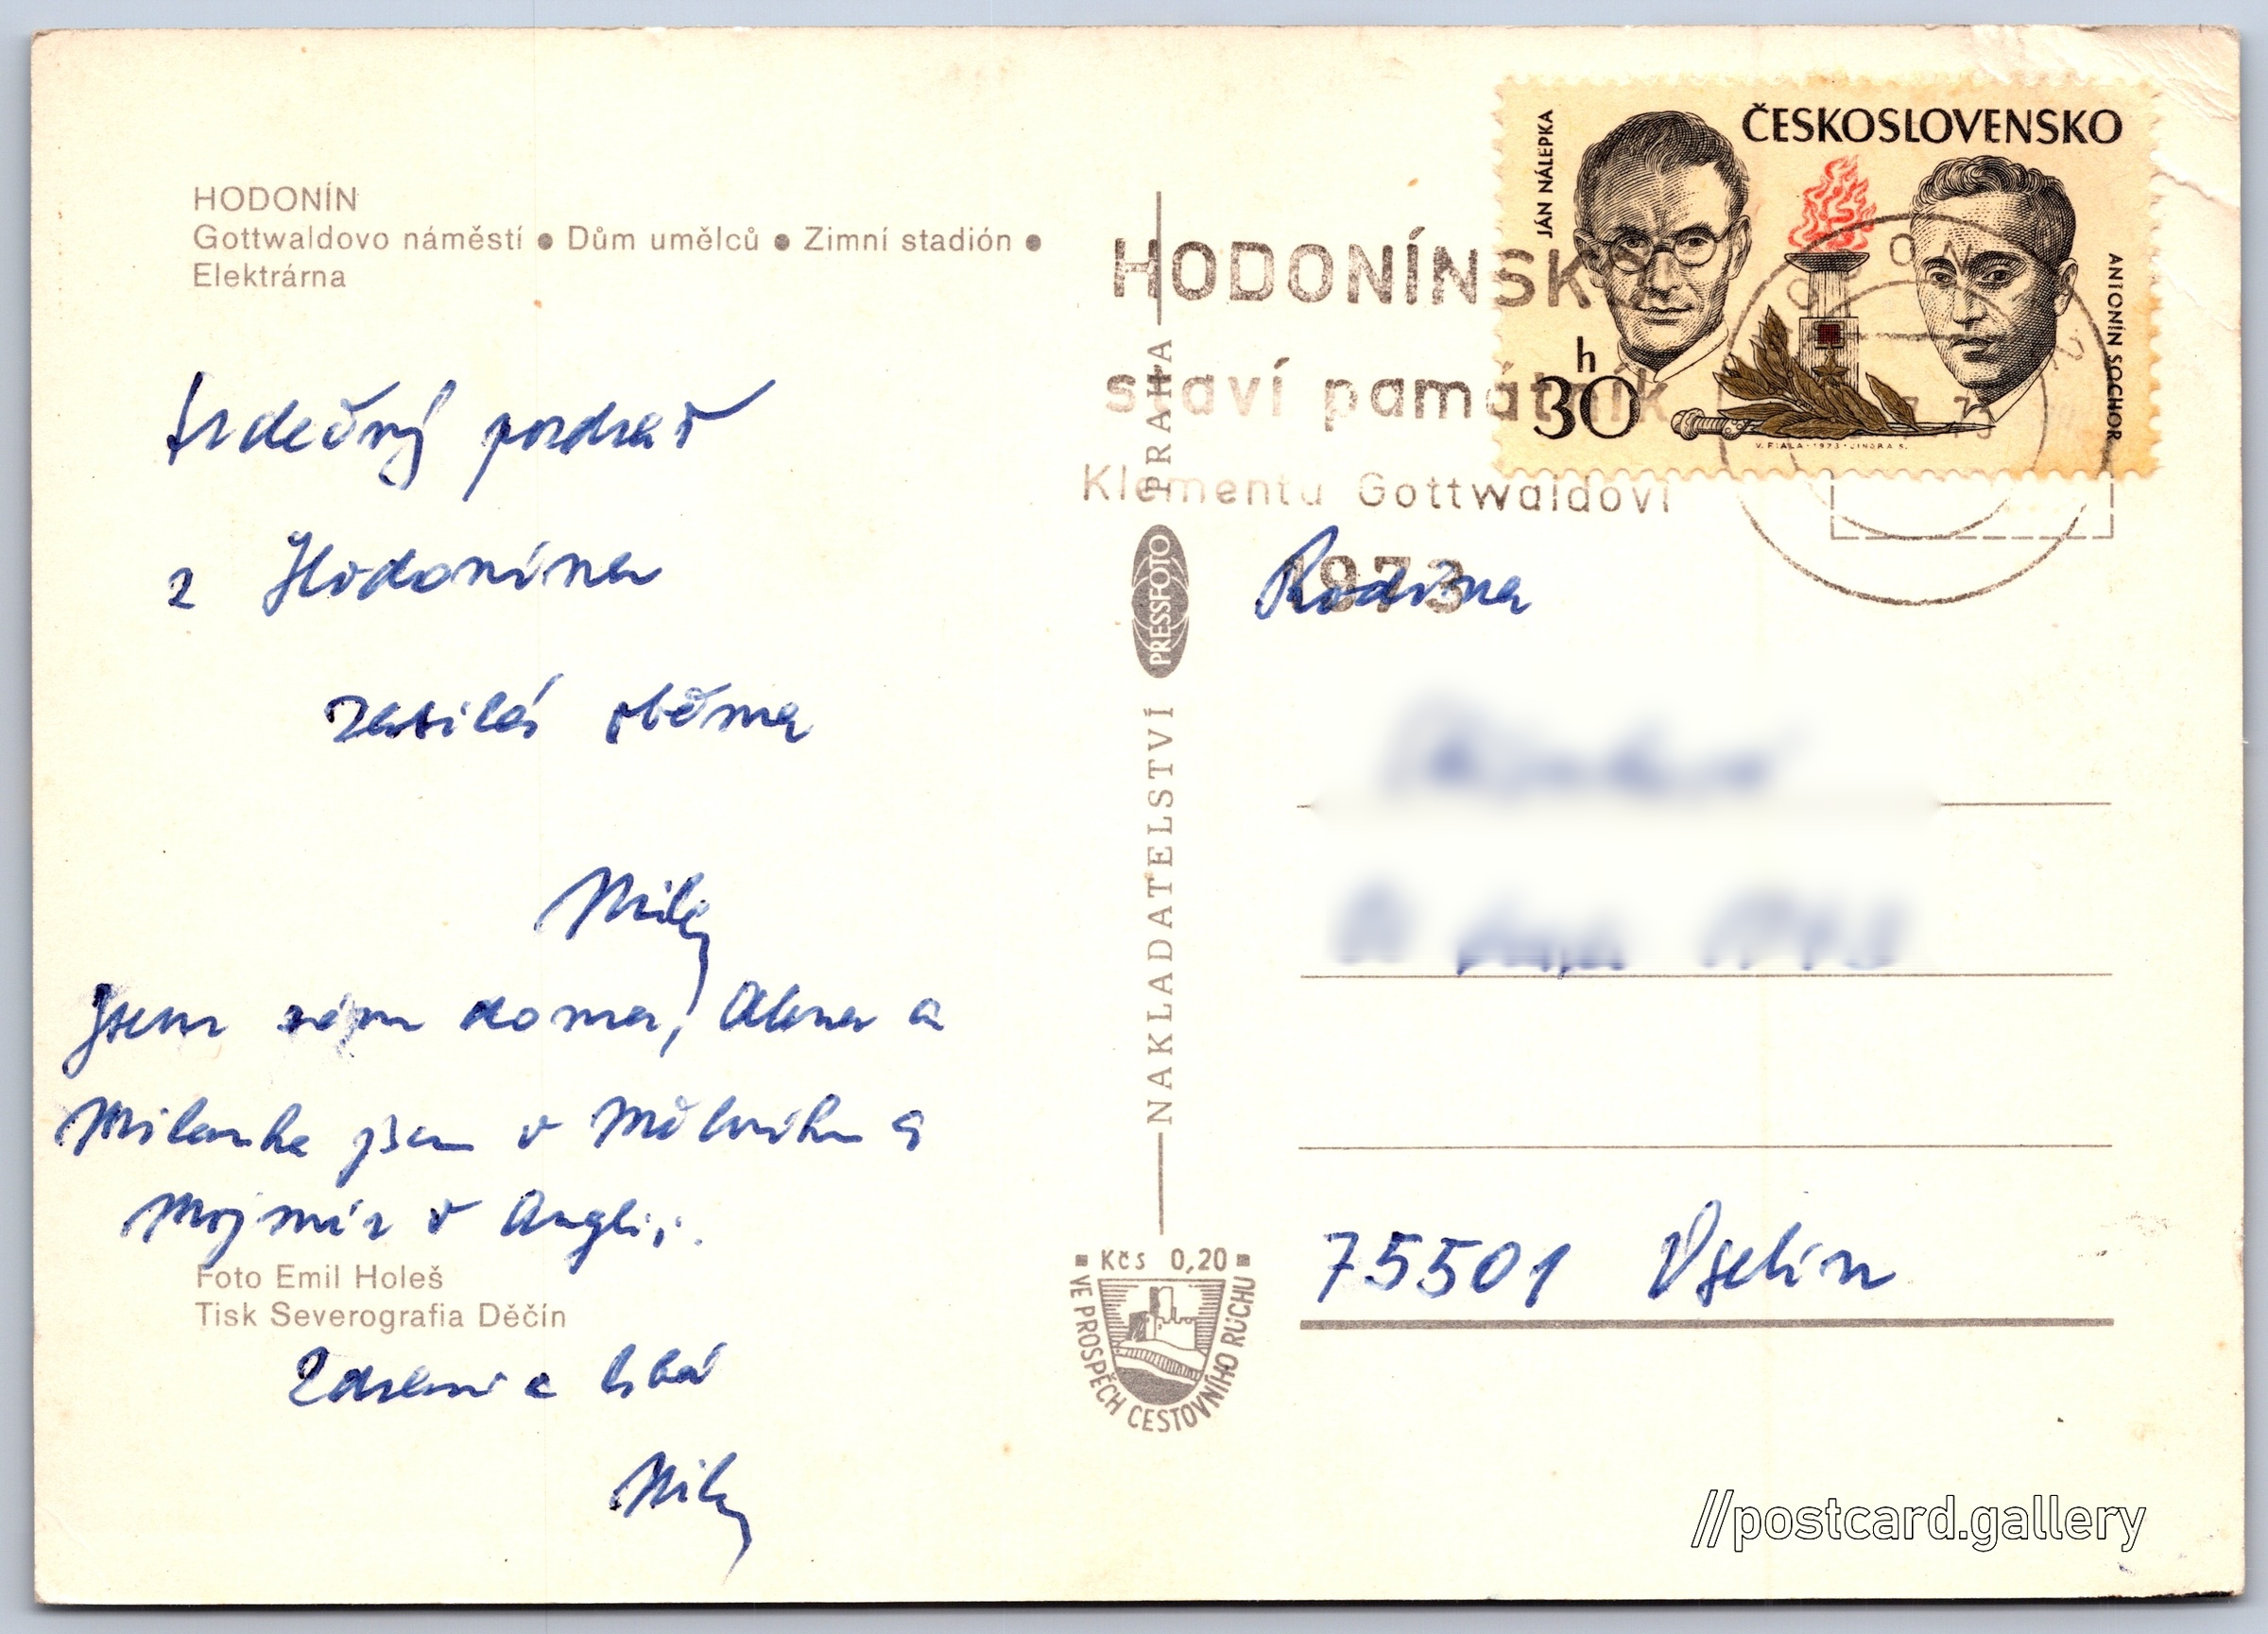 HODONÍN
Gottwaldovo náměstí ● Dům umělců ● Zimní stadión ●
Elektrárna
Srdečný pozdrav
z Hodonína
zasílá oběma
Jsem sám doma, Alena a
Milanka jsou v Mělníku a
Mojmír v Anglii.
Foto Emil Holeš
Tisk Severografia Děčín
Zdraví a líbá
NAKLADATELSTVÍ PRESSFOTO PRAHA
Kčs 0,20
VE PROSPĚCH CESTOVNÍHO RUCHU
ČESKOSLOVENSKO
JÁN NÁLEPKA
ANTONÍN SOCHOR
30 h
V. FIALA · 1973 · JINDRA S.
HODONÍNSKO
staví památník
Klementu Gottwaldovi
1973
Rodina
75501 Vsetín
//postcard.gallery